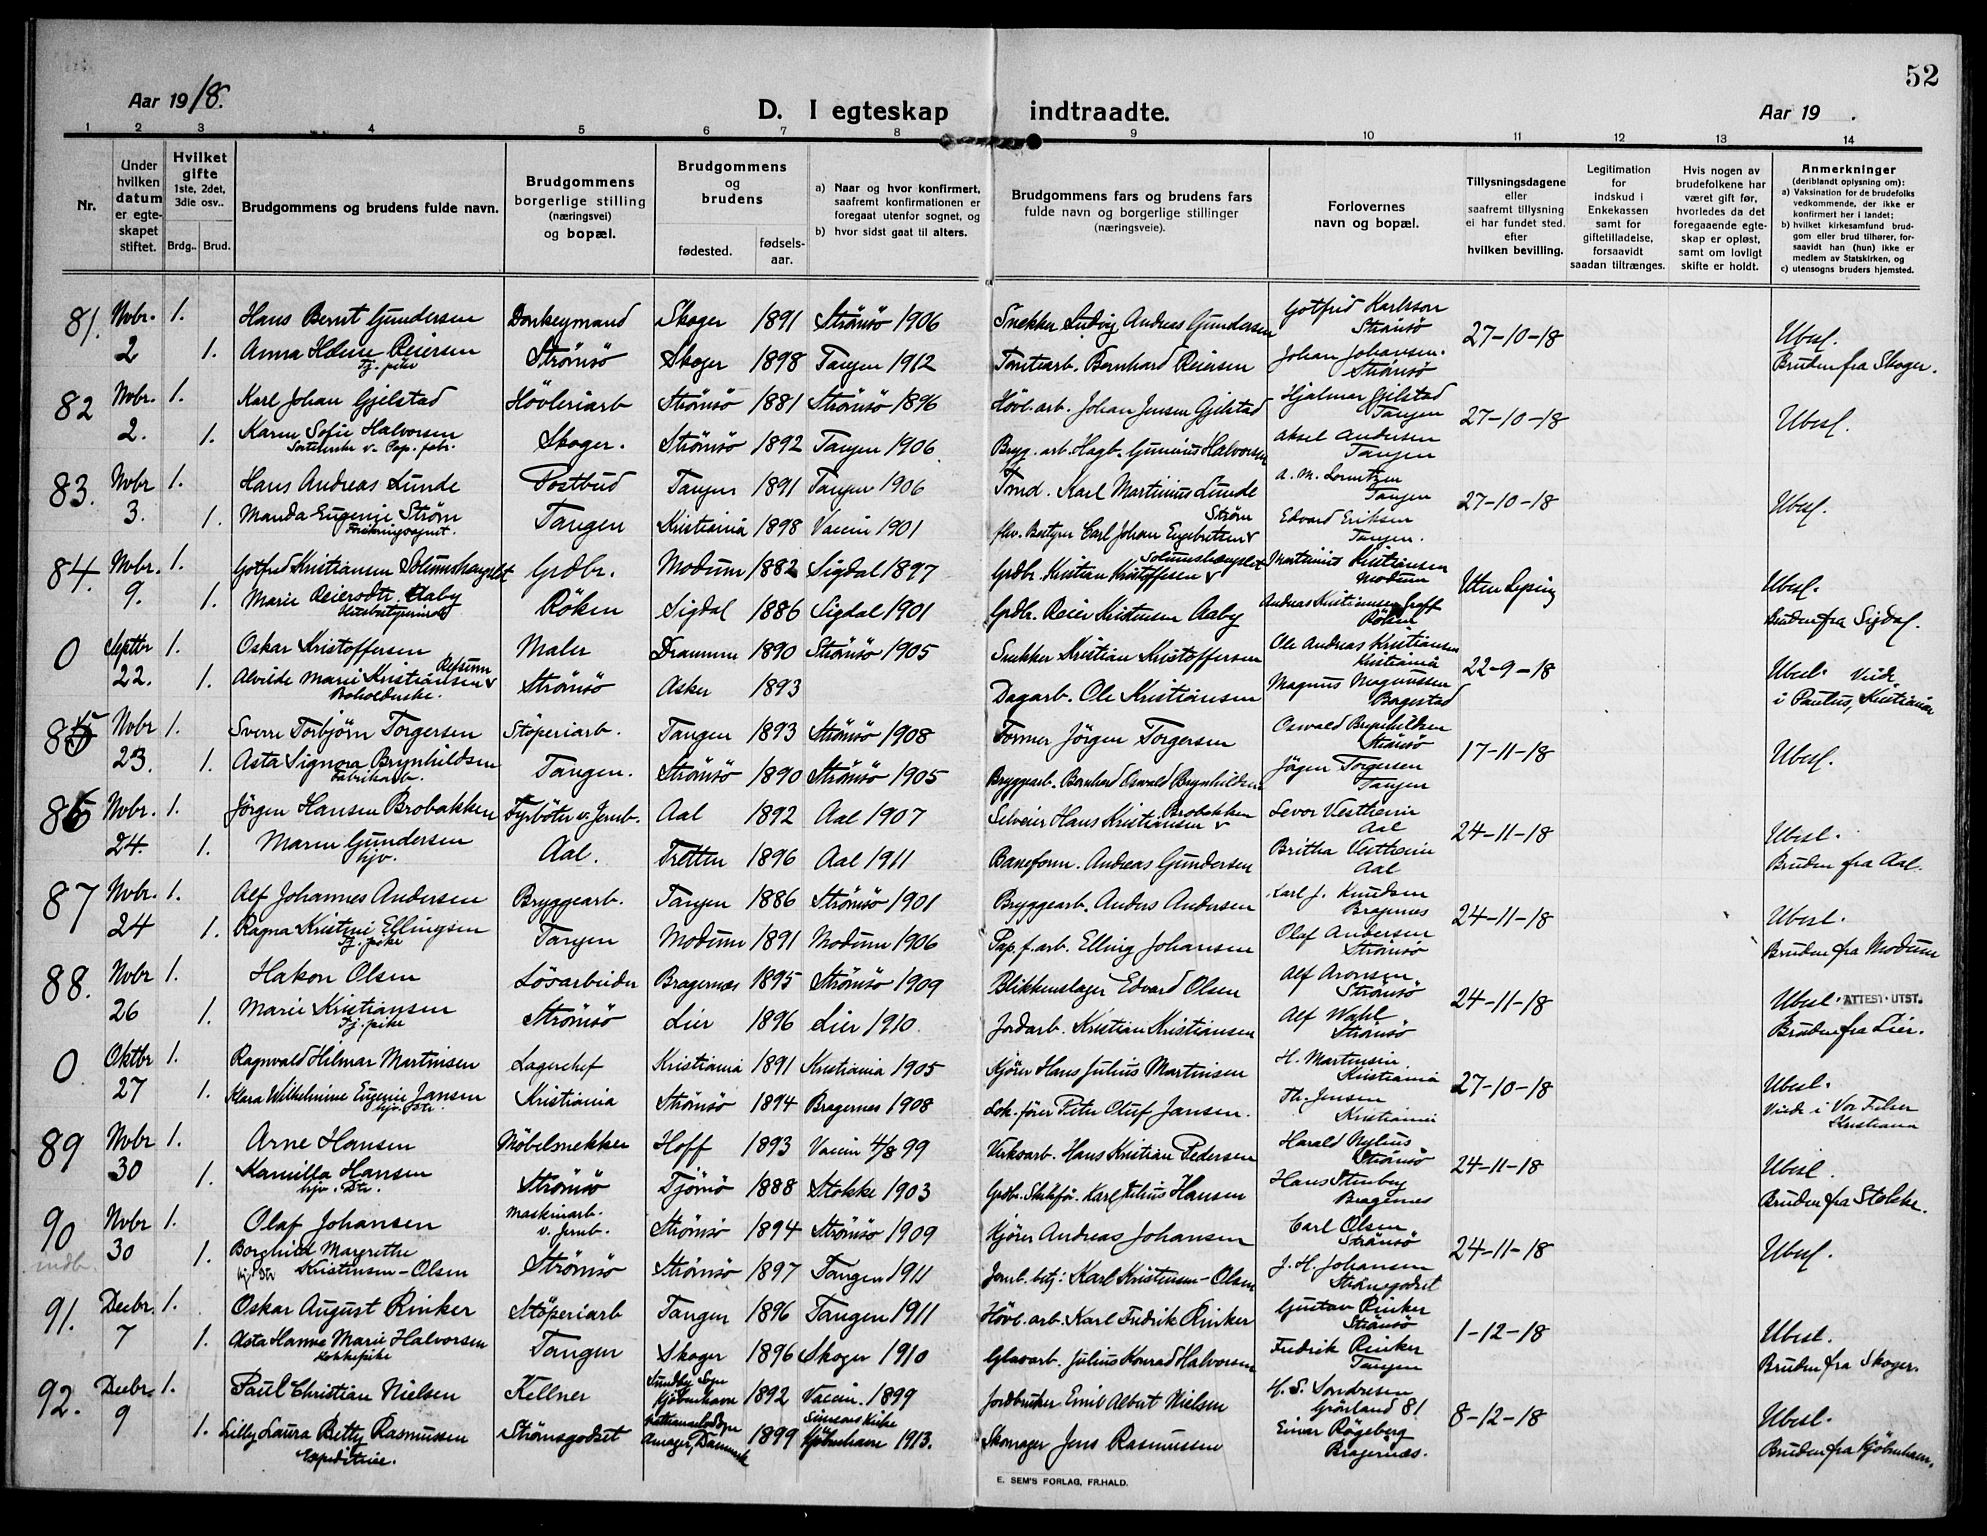 52
Aar 1918.
D. I egteskap indtraadte.
Aar 19 .
1 2 3 4 5 6 7 8 9 10 11 12 13 14
Nr.
Under hvilken datum er egteskapet stiftet.
Hvilket gifte 1ste, 2det, 3die osv..
Brdg.. Brud.
Brudgommens og brudens fulde navn.
Brudgommens borgerlige stilling (næringsvei) og bopæl.
Brudgommens og brudens
fødested. fødselsaar.
a) Naar og hvor konfirmert, saafremt konfirmationen er foregaat utenfor sognet, og
b) hvor sidst gaat til alters.
Brudgommens fars og brudens fars fulde navn og borgerlige stillinger (næringsveie).
Forlovernes navn og bopæl.
Tillysningsdagene eller saafremt tillysning ei har fundet sted. efter hvilken bevilling.
Legitimation for indskud i Enkekassen samt for giftetilladelse, forsaavidt saadan tiltrænges.
Hvis nogen av brudefolkene har været gift før, hvorledes da det foregaaende egteskap er opløst, samt om lovligt skifte er holdt.
Anmerkninger (deriblandt oplysning om):
a) Vaksination for de brudefolks vedkommende, der ikke er konfirmert her i landet;
b) hvilket kirkesamfund brudgom eller brud tilhører, forsaavidt han (hun) ikke er medlem av Statskirken, og
c) utensogns bruders hjemsted.
81. Nvbr. 1. Hans Bernt Gundersen Donkeymand Skoger 1891 Strömsö 1906 Snekker Ludvig Andreas Gundersen Gotfred Karlsson Strömsö 27-10-18 Ubesl.
2 1. Anna Helene Reiersen Tj. pike Strömsö Skoger 1898 Tangen 1912 Tomtearb. Bernhard Reiersen Johan Johansen. Strömsö Bruden fra Skoger.
82 Nvbr. 1. Karl Johan Gjelstad Hövleriarb Strömsö 1881 Strömsö 1896 Hövl. arb. Johan Jensen Gjelstad Hjalmar Gjelstad Tangen 27-10-18 Ubesl.
2. 1. Karen Sofie Halvorsen Sorterske v. Pap. fabr. Skoger. Strömsö 1892 Tangen 1906 Bryg. arb. Hagb. Gunerius Halvorsen Aksel Andersen Tangen
83. Nvbr 1. Hans Andreas Lunde Postbud Tangen 1891 Tangen 1906 Tmd. Karl Martinius Lunde A. M. Lorentzen Tangen 27-10-18 Ubesl.
3. 1. Manda Eugenie Strøm Forsikringsagent. Tangen Kristiania 1898 Vaccin 1901 fhv. Bestyrer Carl Johan Engebretsen Strøm Edvard Eriksen Tangen.
84. Nvbr. 1. Gotfred Kristiansen Solumshengslet Grdbr. Modum 1882 Sigdal 1897 Grdbr. Kristian Kristoffersen Solumshengslet Martinius Kristiansen Modum Uten lysning Ubesl.
9. 1. Marie Reiersdtr. Aaby Husbestyrerinde Röken Sigdal 1886 Sigdal 1901 Grdbr. Reier Kristensen Aaby Andreas Kristiansen Graff Röken Bruden fra Sigdal.
0 Septbr 1. Oskar Kristoffersen Maler Drammen 1890 Strömsö 1905 Snekker Kristian Kristoffersen Ole Andreas Kristiansen Kristiania 22-9-18 Ubesl. Viede
22. 1. Alvilde Marie Kristiansen Refsum Boholderske. Strömsö Asker 1893 Dagarb. Ole Kristiansen Magnus Magnussen Bogestad i Paulus, Kristiania
85 Nvbr 1. Sverre Torbjörn Torgersen Stöperiarb. Tangen 1893 Strömsö 1908 Former Jörgen Torgersen Oswald Brynhildsen Strömsö 17-11-18 Ubesl.
23. 1. Asta Signora Brynhildsen Fabrikarb. Tangen. Strömsö 1890 Strömsö 1905 Bryggearb. Bernhard Oswald Brynhildsen Jörgen Torgersen Tangen
86 Nvbr. 1. Jörgen Hansen Brobakken Fyrböter v. Jernb. Aal 1892 Aal 1907 Selveier Hans Kristiansen Brobakken Levor Vestheim Aal 24-11-18 Ubesl.
24. 1. Maren Gundersen hjv. Aal. Tretten 1896 Aal 1911 Baneform. Andreas Gundersen Britha Vestheim Aal Bruden fra Aal.
87 Nvbr. 1. Alf Johannes Andersen Bryggearb. Tangen 1886 Strömsö 1901 Bryggearb. Anders Andersen Karl J. Knudsen Bragernes 24-11-18 Ubesl.
24 1. Ragna Kristine Ellingsen Tj. pike Tangen Modum 1891 Modum 1906 Pap. f. arb. Elling Johansen Olaf Andersen Strömsö Bruden fra Modum
88. Nvbr 1. Hakon Olsen Lösarbeider Bragernæs 1895 Strömsö 1909 Blikkenslager Edvard Olsen Alf Aronsen Strömsö 24-11-18 Ubesl. ATTEST UTST.
26 1. Marie Kristiansen Tj. pike Strömsö Lier 1896 Lier 1910. Jordarb. Kristian Kristiansen Alf Wahl Strömsö Bruden fra Lier.
0 Oktbr 1. Ragnvald Hilmar Martinsen Lagerchef Kristiania 1891 Kristiania 1905 Kjörer Hans Julius Martinsen H. Martinsen Kristiania 27-10-18 Ubesl.
27 1. Klara Wilhelmine Eugenie Jansen hjv. Dtr. Kristiania Strömsö 1894 Bragernes 1908 Lok. förer Peter Oluf Jansen. Th. Jensen Kristiania Viede i Vor Frelser Kristiania
89 Nvbr 1. Arne Hansen Möbelsnekker Hoff 1893 Vaccin 4/8 99 Verksarb. Hans Kristian Pedersen Harald Nylius Strömsö 24-11-18 Ubesl.
30 1. Kamilla Hansen hjv. Dtr. Strömsö Tjömö 1888 Stokke 1903 Grdbr. Skibsför. Karl Julius Hansen Hans Stenberg Bragernes Bruden fra Stokke.
90 Nvbr 1. Olaf Johansen Maskinarb. v. Jernb. Strömsö 1894 Strömsö 1909 Kjörer Andreas Johansen Carl Olsen Strömsö 24-11-18 Ubesl.
indb. 30 1. Borghild Margrethe Kristensen-Olsen hjv. Dtr Strömsö Strömsö 1897 Tangen 1911 Jernb. betj: Karl Kristensen-Olsen J. H. Johansen Strömsgodset
91. Decbr. 1. Oskar August Rinker Stöperiarb Tangen 1896 Tangen 1911 Hövl. arb. Karl Fredrik Rinker Gustav Rinker Strömsö 1-12-18 Ubesl.
7 1. Asta Hanna Marie Halvorsen Kokkepike Tangen Skoger 1896 Skoger 1910 Glasarb. Julius Konrad Halvorsen Fredrik Rinker Tangen Bruden fra Skoger.
92. Decbr. 1. Paul Christian Nielsen Kellner Sundby Sogn Kjöbenhavn 1892 Vaccin. 1899 Jordbruker Emil Albert Nielsen H. S. Sondresen Grönland 81 8-12-18 Ubesl.
9 1. Lilly Laura Betty Rasmussen Expeditrice. Strömsgodset Amager, Danmark 1899 Simeons Kirke Kjöbenhavn 1913. Skomager Jens Rasmussen Einar Rögeberg Bragernæs. Bruden fra Kjöbenhavn.
E. SEM'S FORLAG, FR.HALD.